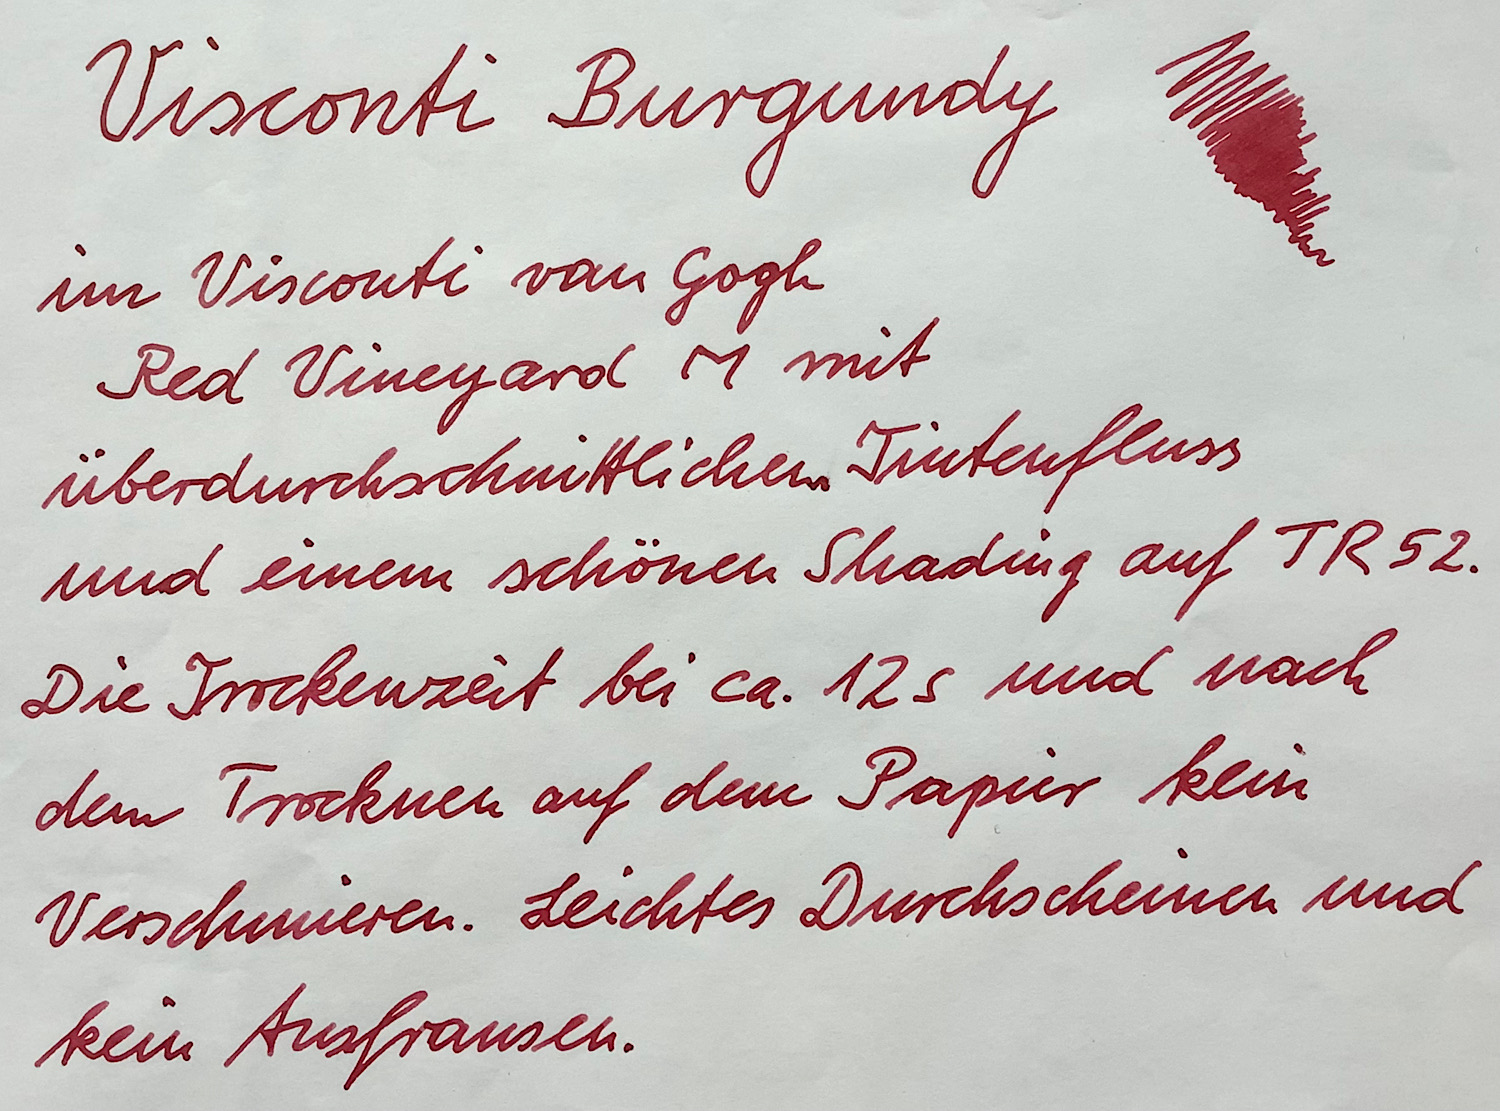 Visconti Burgundy
im Visconti van Gogh
Red Vineyard M mit
überdurchschnittlichem Tintenfluss
und einem schönen Shading auf TR52.
Die Trockenzeit bei ca. 12s und nach
dem Trocknen auf dem Papier kein
Verschmieren. Leichtes Durchscheinen und
kein Ausfransen.